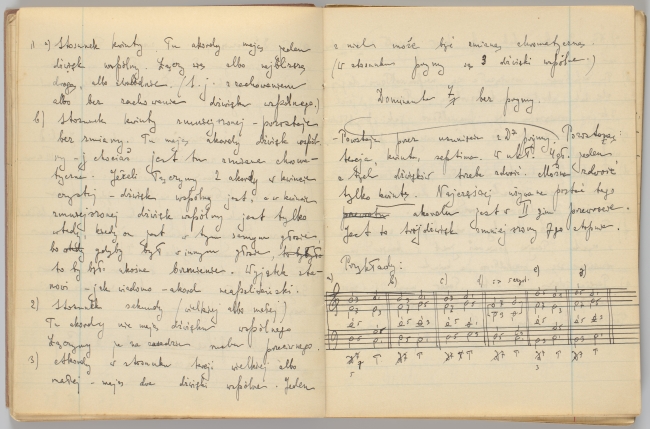 1) a) Stosunek kwinty. Tu akordy mają jeden
dźwięk wspólny. Łączy się albo najbliższą
drogą, albo (t.j. z zachowaniem
albo bez zachowania dźwięku wspólnego.)
b) Stosunek kwinty zmniejszonej - pozostaje
bez zmiany. Tu mają akordy dźwięk wspól-
ny - chociaż jest tu zmiana chroma-
tyczna. Jeżeli łączymy 2 akordy w kwincie
czystej - dźwięk wspólny jest, a w kwincie
zmniejszonej dźwięk wspólny jest tylko
wtedy kiedy on jest w tym samym głosie
bo gdyby był w innym głosie,
to by było ukośne brzmienie. Wyjątek sta-
nowi - jak wiadomo - akord neapolitański.
2) Stosunek sekundy (wielkiej albo małej)
Tu akordy nie mają dźwięku wspólnego
Łączymy je na zasadzie ruchu przeciwnego.
3) Akordy w stosunku tercji wielkiej albo
małej - mają dwa dźwięki wspólne. Jeden
z nich może być zmianą chromatyczną
(W stosunku prymy są 3 dźwięki wspólne.)
Dominanta 7 bez prymy.
- Powstaje przez usunięcie z D7 prymy. Pozostają:
tercja, kwinta, septyma. W ukł. 4gł. jeden
z tych dźwięków trzeba dwoić. Można zdwoić
tylko kwintę. Najczęściej używana postać tego
akordu jest w II gim przewrocie.
Jest to trójdźwięk zmniejszony 7go stopnia.
Przykłady:
a) b) c) d) e) g)